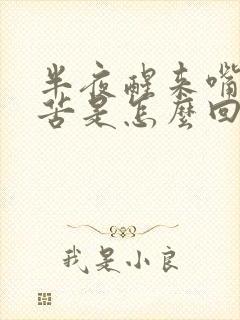 半夜醒来嘴
苦是怎麼回
我是小良